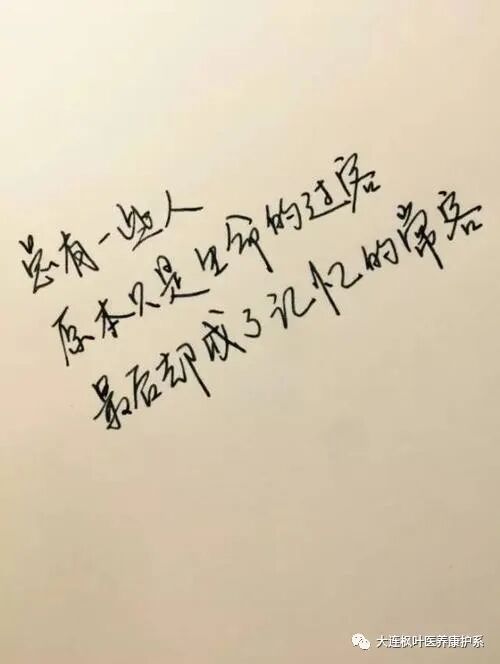 总有一些人
原本只是生命的过客
最后却成了记忆的常客
大连枫叶医养康护系